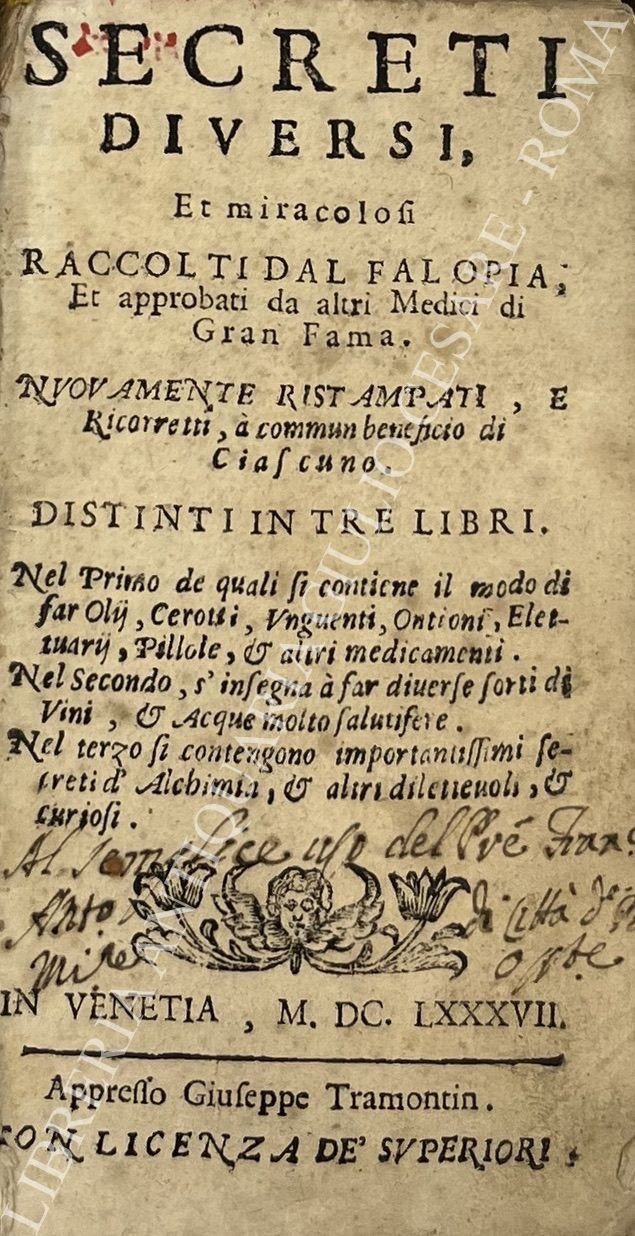 SECRETI
DIVERSI,
Et miracoloſi
RACCOLTI DAL FALOPIA,
Et approbati da altri Medici di
Gran Fama.
NVOVAMENTE RISTAMPATI, E
Ricorretti, à commun beneficio di
Ciaſcuno.
DISTINTI IN TRE LIBRI.
Nel Primo de quali ſi contiene il modo di
far Olij, Cerotti, Vnguenti, Ontioni, Elet-
tuarij, Pillole, & altri medicamenti.
Nel Secondo, s'inſegna à far diuerſe ſorti di
Vini, & Acque molto ſalutifere.
Nel terzo ſi contengono importantiſſimi ſe-
creti d'Alchimia, & altri diletteuoli, &
curioſi.
Al semplice uso del Pre Fran
Anto di Città d
IN VENETIA, M. DC. LXXXVII.
Appreſſo Giuſeppe Tramontin.
CON LICENZA DE' SVPERIORI.
LIBRERIA ANTIQUARIA GIULIO CESARE - ROMA